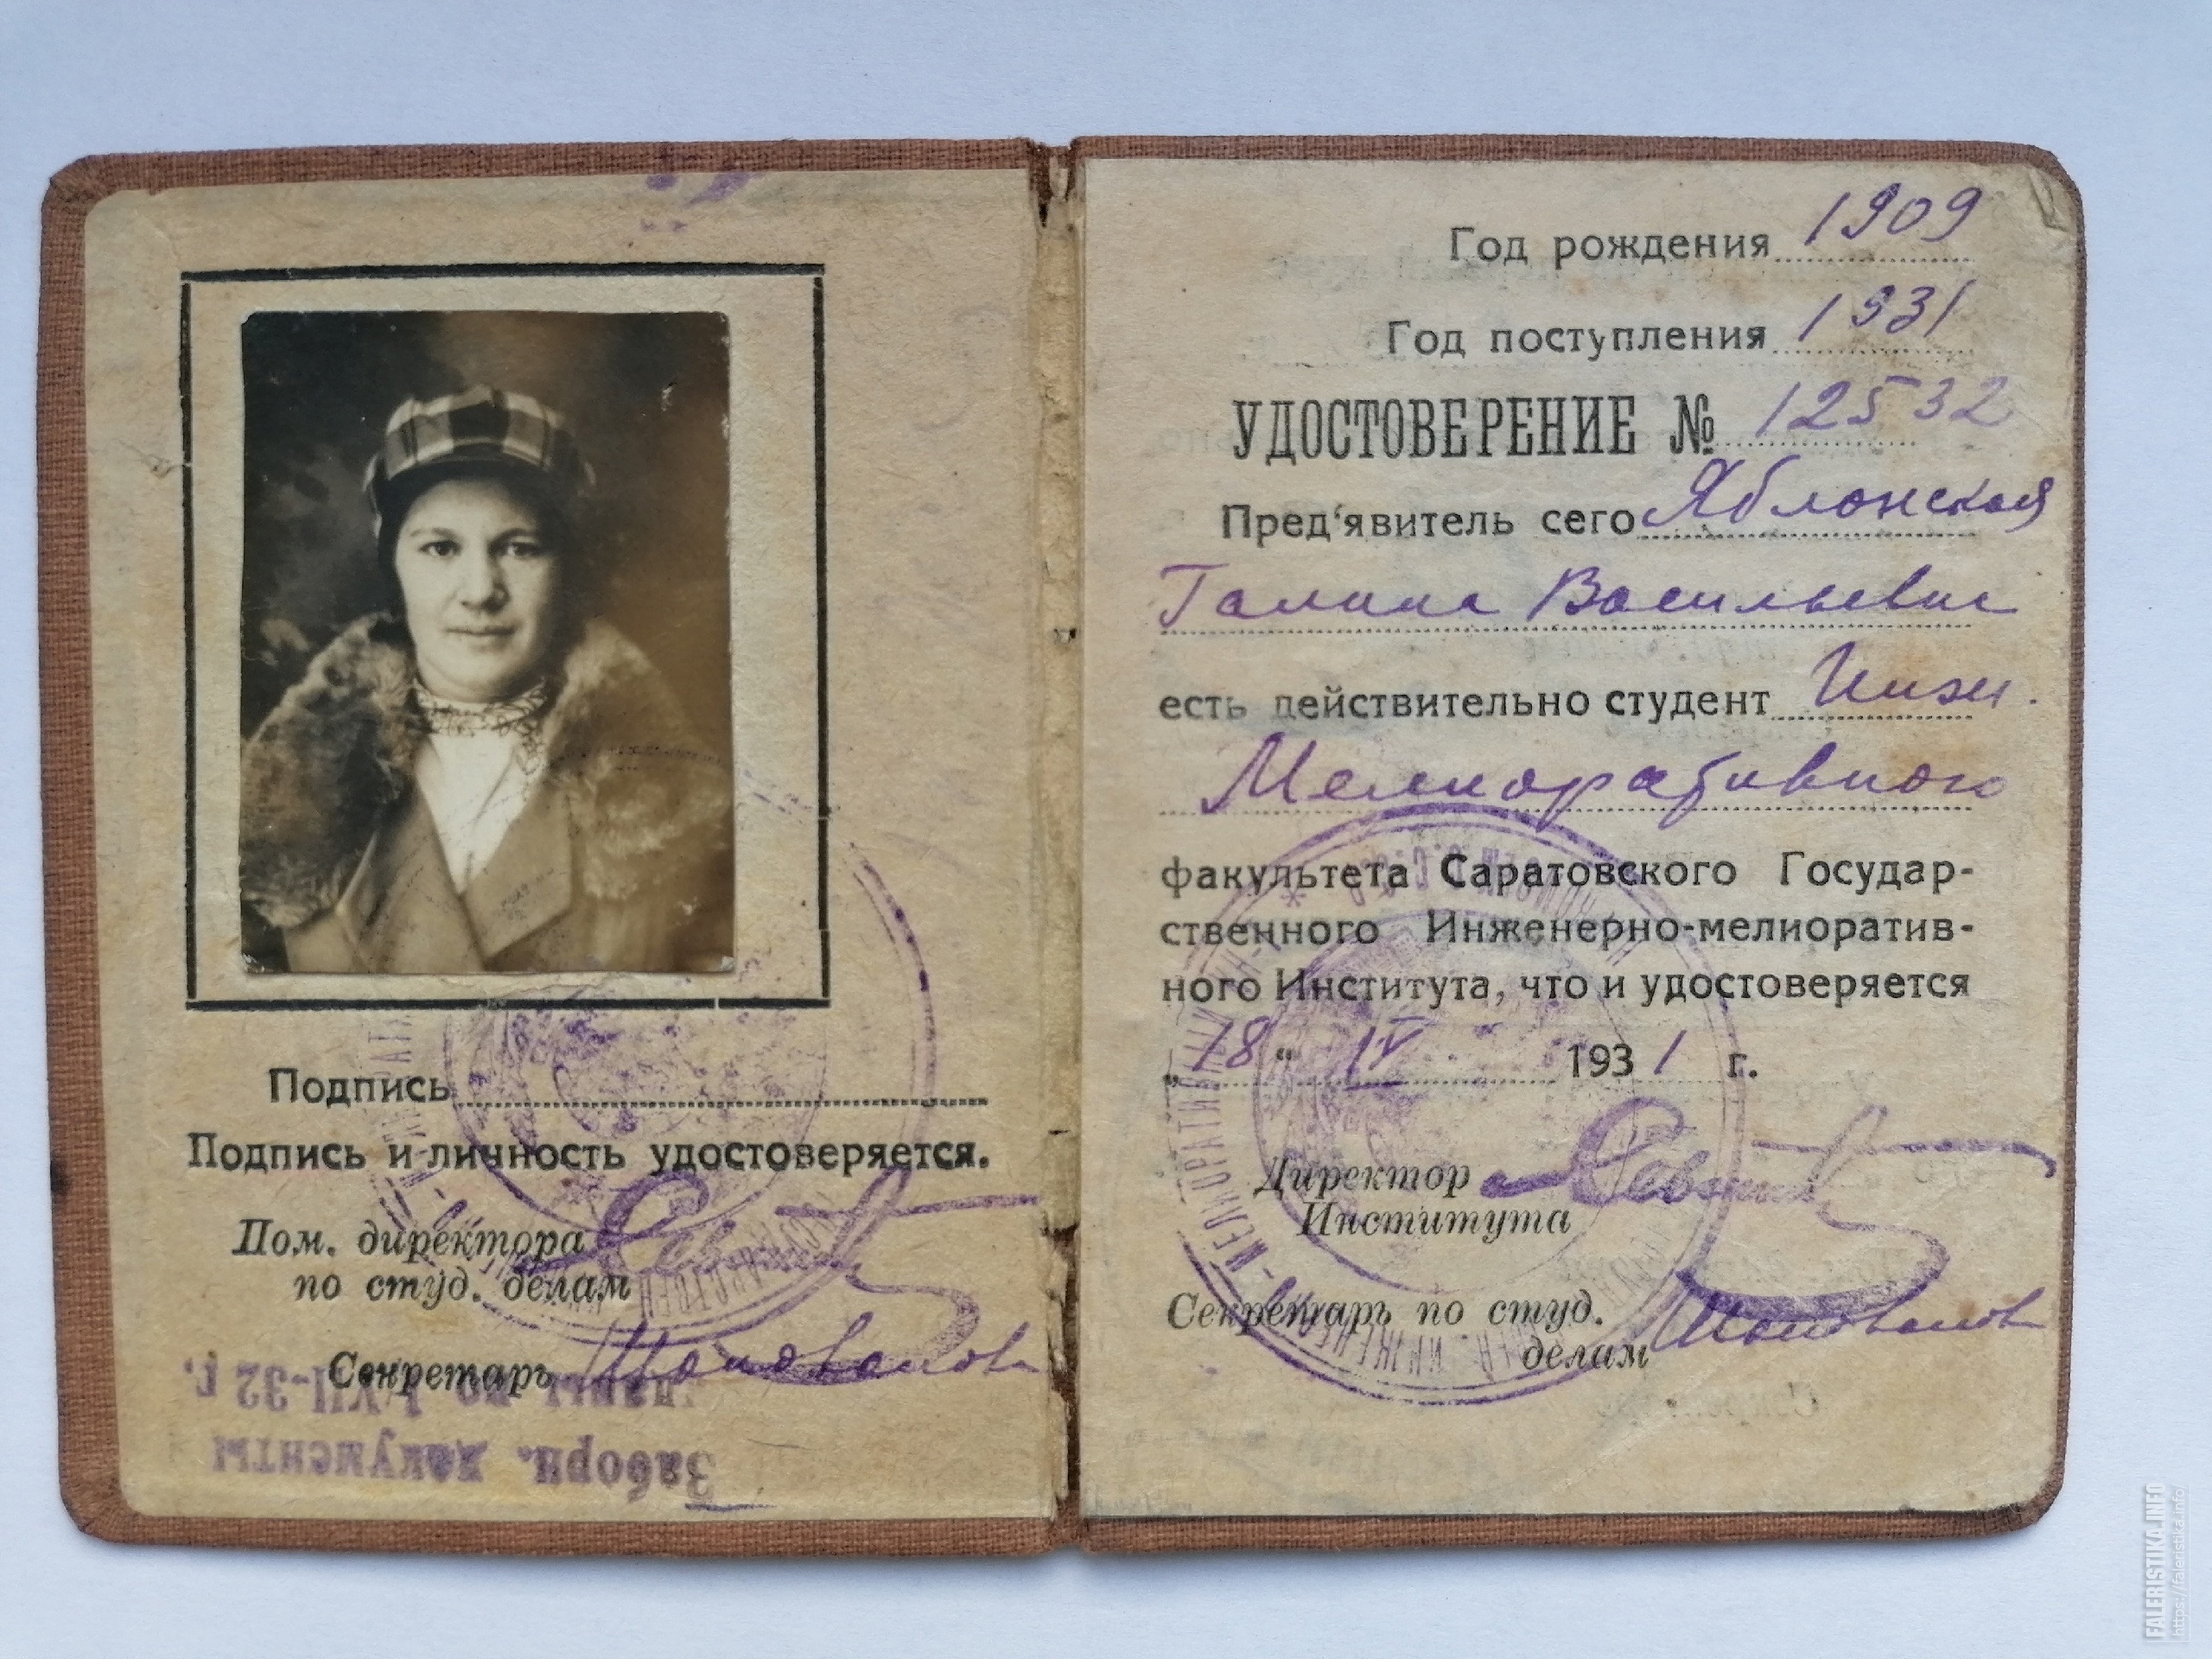 Подпись
Подпись и личность удостоверяется.
Пом. директора
по студ. делам
Секретарь
Заборн. документы
даны по 1-VII-32 г.
Год рождения 1909
Год поступления 1931
УДОСТОВЕРЕНИЕ № 12532
Пред'явитель сего Яблонская
Галина Васильевна
есть действительно студент Инж.
Мелиоративного
факультета Саратовского Государ-
ственного Инженерно-мелиоратив-
ного Института, что и удостоверяется
„18“ IV 1931 г.
Директор
Института
Секретарь по студ.
делам
FALERISTIKA.INFO
https://faleristika.info